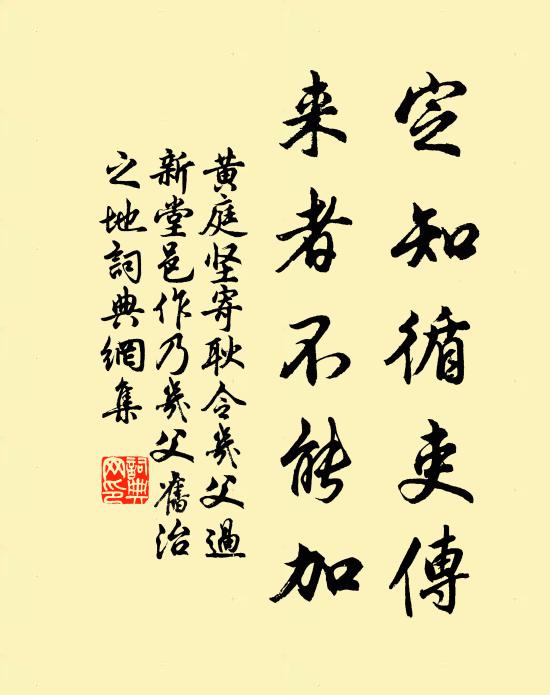 定知循吏傳
来者不能加
黄庭坚寄耿令幾父過
新堂邑作乃幾父舊治
之地詞典網集
詞典
网印